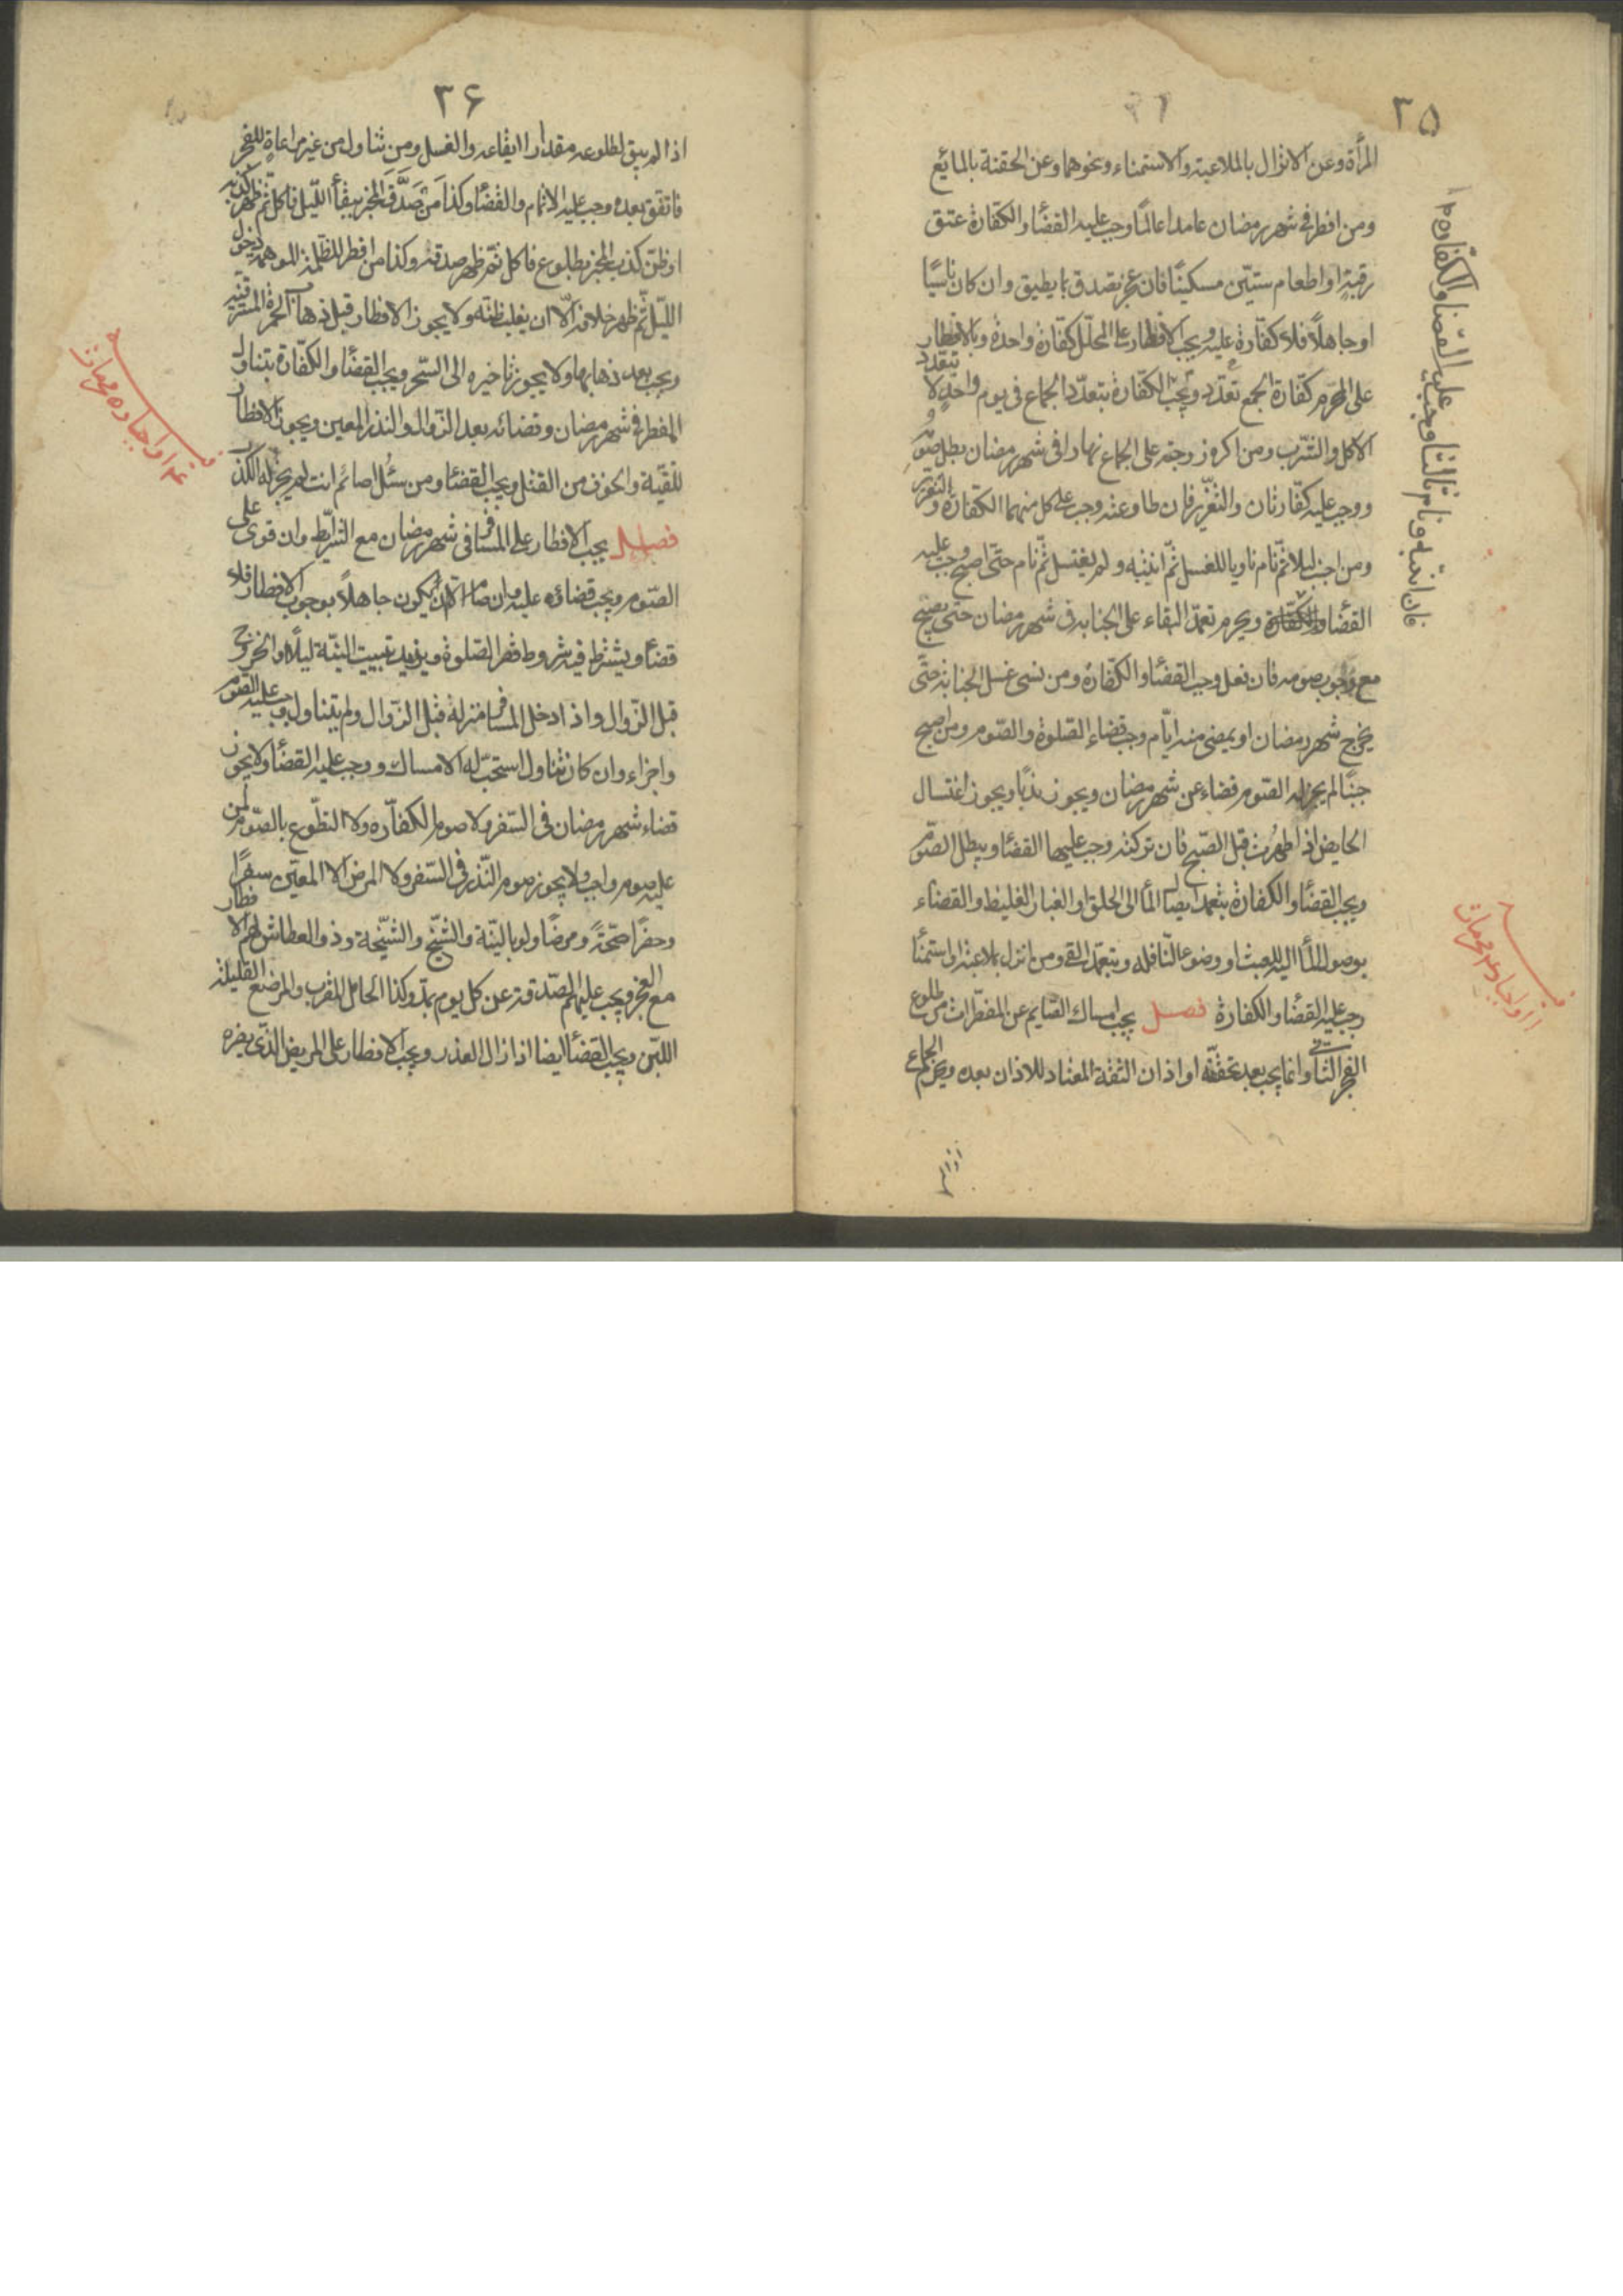 ٣٥
المرأة وعن الانزال بالملاعبة والاستمناء ونحوهما وعن الحقنة بالمائع
ومن افطر فى شهر رمضان عامدا عالمًا وجب عليه القضأ والكفارة عتق
رقبةٍ او اطعام ستيّن مسكينًا فان عجز تصدق بما يطيق وان كان ناسيًا
او جاهلًا فلا كفّارة عليه ويجب بالافطار على المحلّل كفّارة واحدة وبالافطار
على المحرّم كفّارة الجمع وتجب الكفّارة بتعدّد الجماع فى يوم واحدٍ لا
الاكل والشّرب ومن اكره زوجته على الجماع نهارا فى شهر رمضان بطل صومه
ووجب عليه كفّارتان والتغزير فان طاوعته وجب على كل منهما الكفّارة والتغزير
ومن اجنب ليلا ثمّ نام ناويا للغسل ثمّ انتبه ولم يغتسل ثمّ نام حتّى اصبح وجب عليه
القضأ ويحرم تعمّد البقاء على الجنابه فى شهر رمضان حتى يصبح
مع وجوب صومه فان فعل وجب القضأ والكفّاره ومن نسى غسل الجنابة حتّى
يخرج شهر رمضان او يمضى منه ايّام وجب قضاء الصّلوة والصّوم ومن اصبح
جنبًا لم يجز له الصّوم قضاء عن شهر رمضان ويجوز ندبًا ويجوز اغتسال
الحايض اذا طهرت قبل الصّبح فان تركته وجب عليها القضأ ويبطل الصّوم
ويجب القضأ والكفّارة بتعمد ايصال المأ الى الحلق او الغبار الغليظ والقضاء
بوصول المأ اليه للعبث او وضوء النّافله وبتعمّد القئ ومن انزل بملاعبة او استمنأ
وجب عليه القضأ والكفارة فصل يجب امساك الصّايم عن المفطّرات من طلوع
الفجر الثانى وانما يجب بعد تحقّقه او اذان الثقة المعتاد للاذان بعده ويحرم الجماع
فان انتبه ونام ثالثا وجب عليه القضا والكفاره
٣۶
اذا لم يبق لطلوعه مقدار ايقاعه والغسل ومن تناول من غير مراعاة للفجر
فاتفق بعده وجب عليه الاتمام والقضأ وكذا من صَدَّقَ المخبر ببقأ اللّيل فاكل ثم ظهر كذبه
او ظنّ كذب المخبر بطلوع فاكل ثمّ ظهر صدقه وكذا من افطر للظّلمة الموهمة دخول
اللّيل ثمّ ظهر خلافه الّا ان يغلب ظنّه ولا يجوز الافطار قبل ذهاب الحمرة المشرقية
ويجب بعد ذهابها ولا يجوز تاخيره الى السّحر ويجب القضأ والكفّارة بتناول
المفطر فى شهر رمضان وقضائه بعد الزّوال والنذر المعين ويجوز الافطار
للتّقيّة والخوف من القتل ويجب القضأ ومن سئل اصائم انت لم يجز له الكذب
فصل يجب الافطار على المسافر فى شهر رمضان مع الشّرايط وان قوى على
الصّوم ويجب قضاؤه عليه وان صام الّا ان يكون جاهلاً بوجوب الافطار فلا
قضأ ويشترط فيه شروط قصر الصّلوة ويزيد تبييت النيّة ليلاً والخروج
قبل الزّوال واذا دخل المسافر منزله قبل الزّوال ولم يتناول وجب عليه الصّوم
واجزاء وان كان تناول استحبّ له الامساك ووجب عليه القضأ ولا يجوز
قضاء شهر رمضان فى السّفر ولا صوم الكفاّره ولا التطّوع بالصّوم لمن
عليه صوم واجب ولا يجوز صوم النّذر فى السّفر ولا المرض الا المعيّن سفرًا
وحضرًا صحّةً ومرضًا ولو بالنيّة والشّيخ والشّيخة وذو العطاش لهم الافطار
مع العجز ويجب عليهم الصّدقة عن كل يوم بمدّ وكذا الحامل المقرب والمرضع القليلة
اللبّن ويجب القضأ ايضا اذا زال العذر ويجب الافطار على المريض الّذى يضره